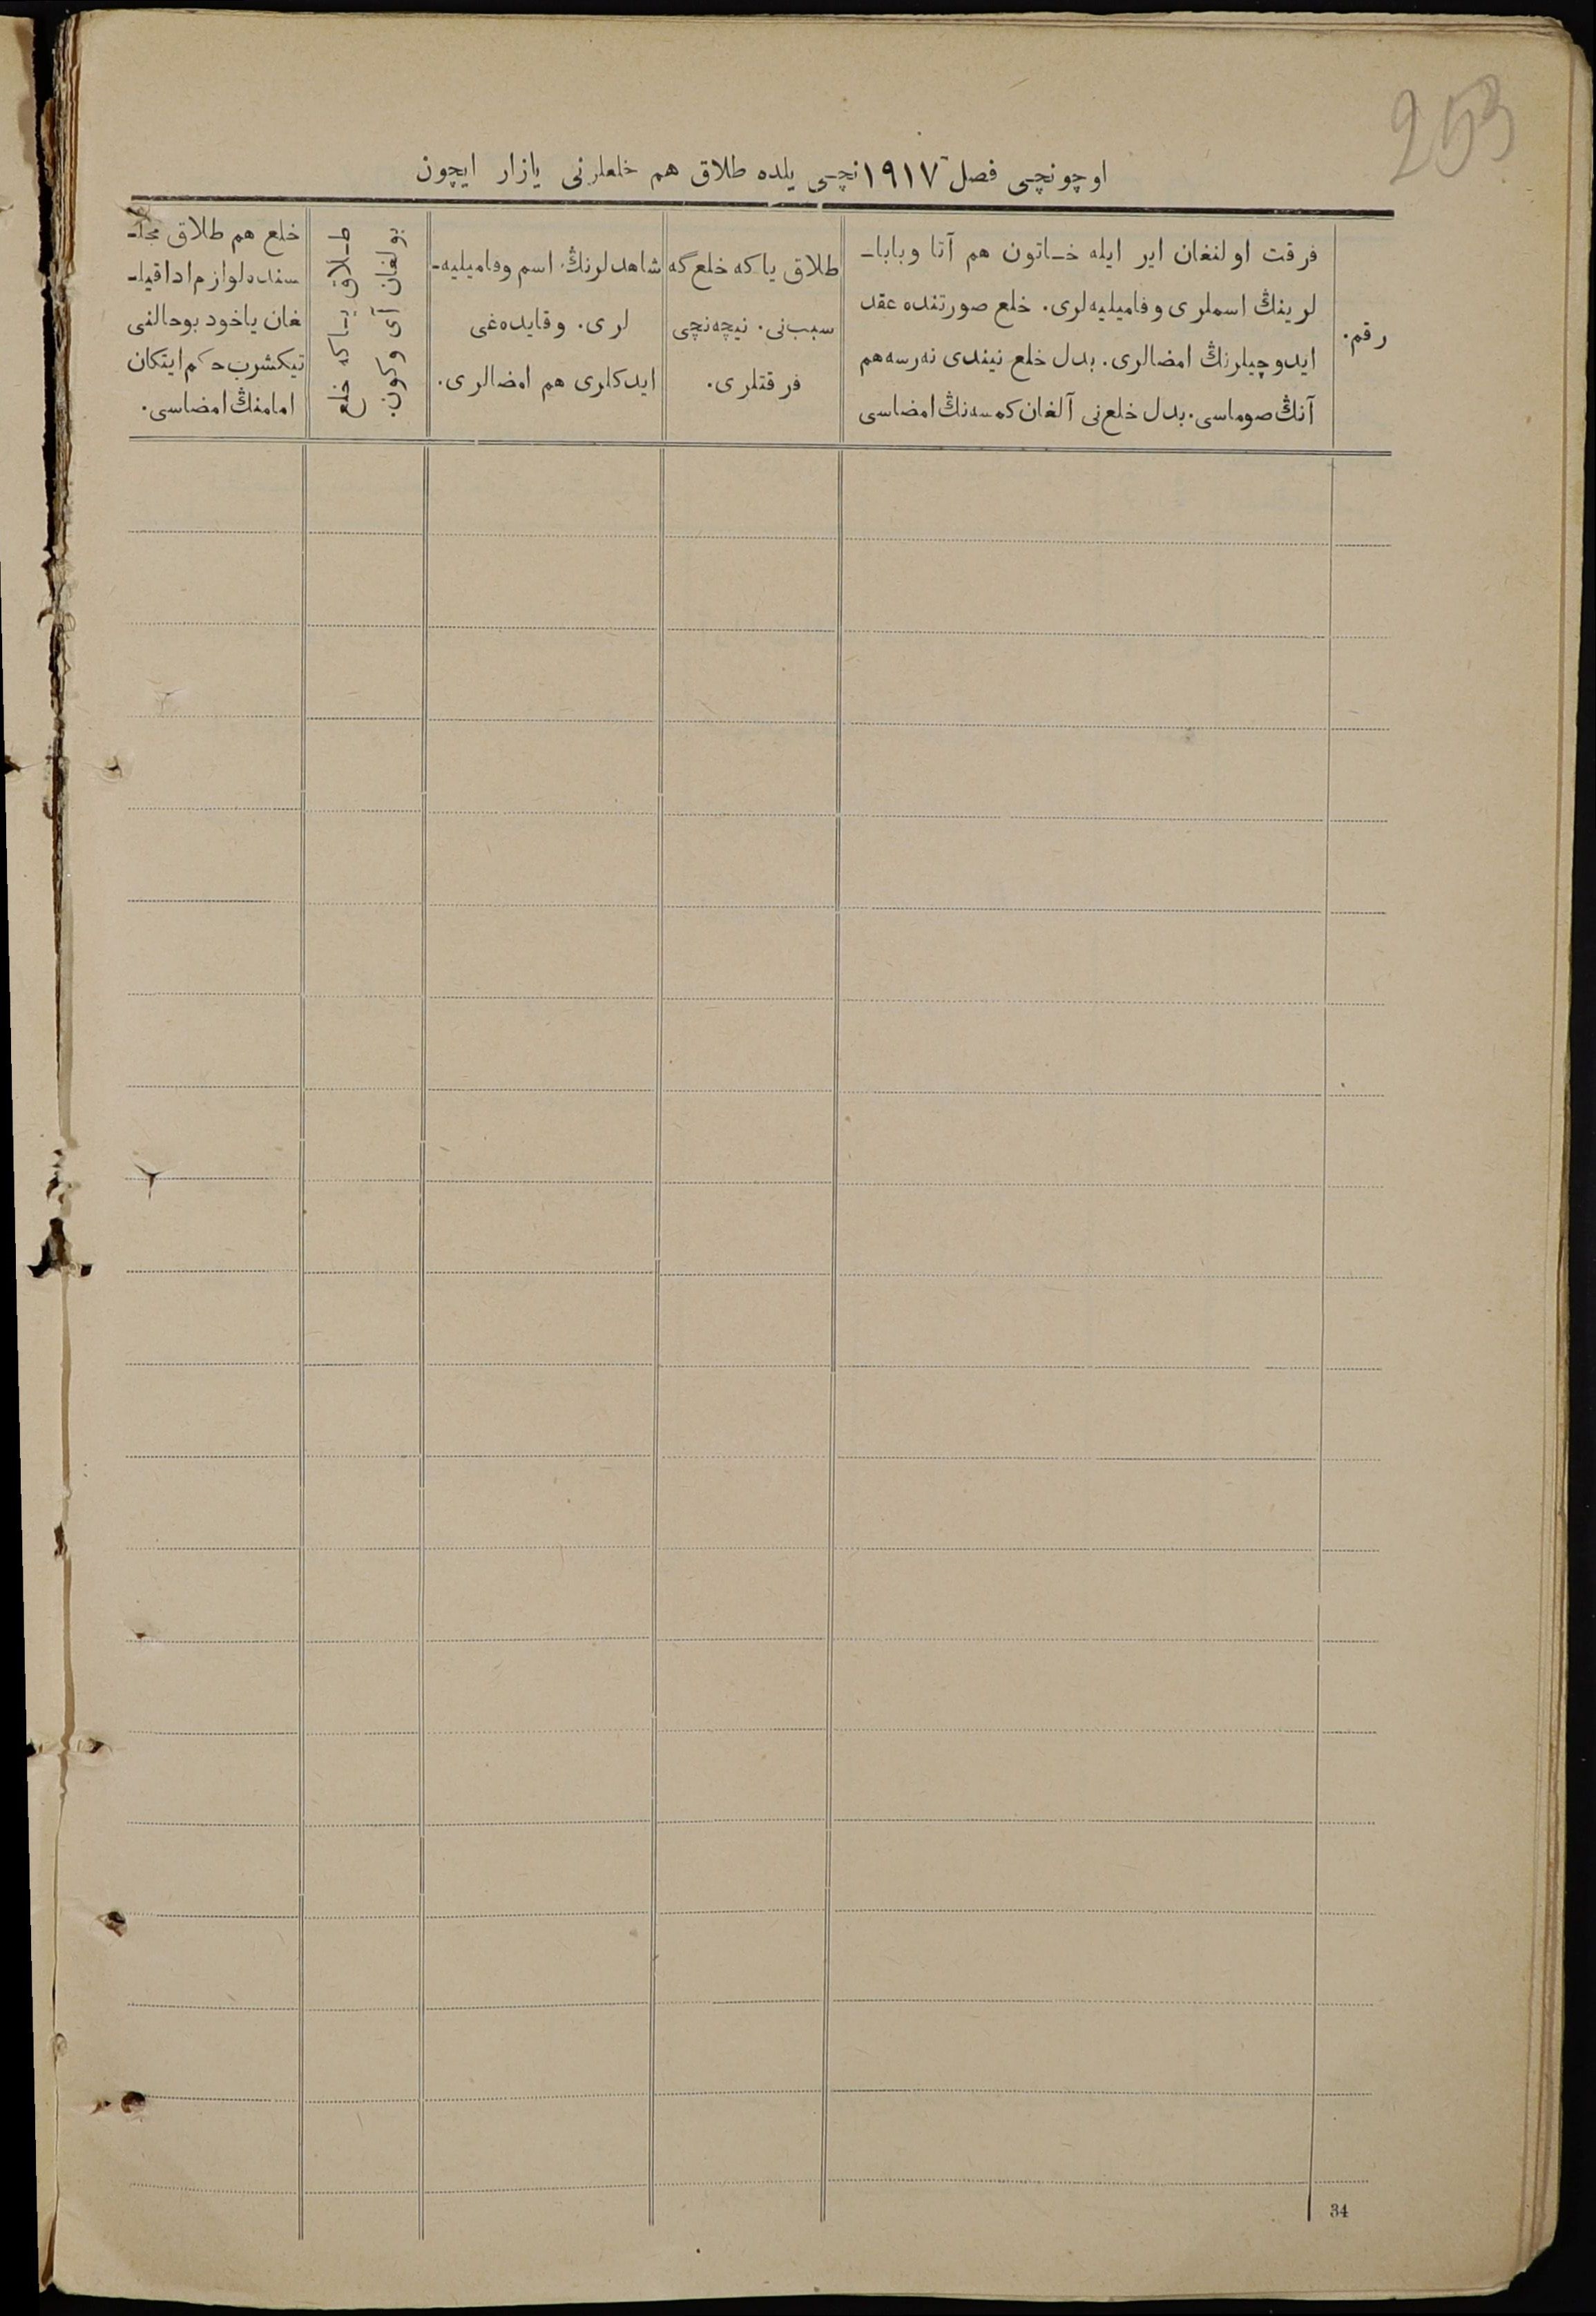 253
اوچونچی فصل ۱۹۱۷نچی یلده طلاق هم خلعلرنی یازار ایچون
رقم.
فرقت اولنغان ایر ایله خـاتون هم آتا وباباـ
لرینڭ اسملری وفامیلیه‌لری. خلع صورتنده عقد
ایدوچیلرنڭ امضالری. بدل خلع نیندی نه‌رسه هم
آنڭ صوماسی. بدل خلع‌نی آلغان کمسه‌نڭ امضاسی
طلاق یاکه خلع گه
سبب‌نی. نیچه‌نچی
فرقتلری.
شاهدلرنڭ اسم وفامیلیه‌ـ
لری. وقایده‌غی
ایدکلری هم امضالری.
طـلاق یـاکه خلع
بولغان آی وکون.
خلع هم طلاق مجلـ
سنده لوازم ادا قیلـ
غان یاخود بوحالنی
تیکشرب حکم ایتکان
امامنڭ امضاسی.
34